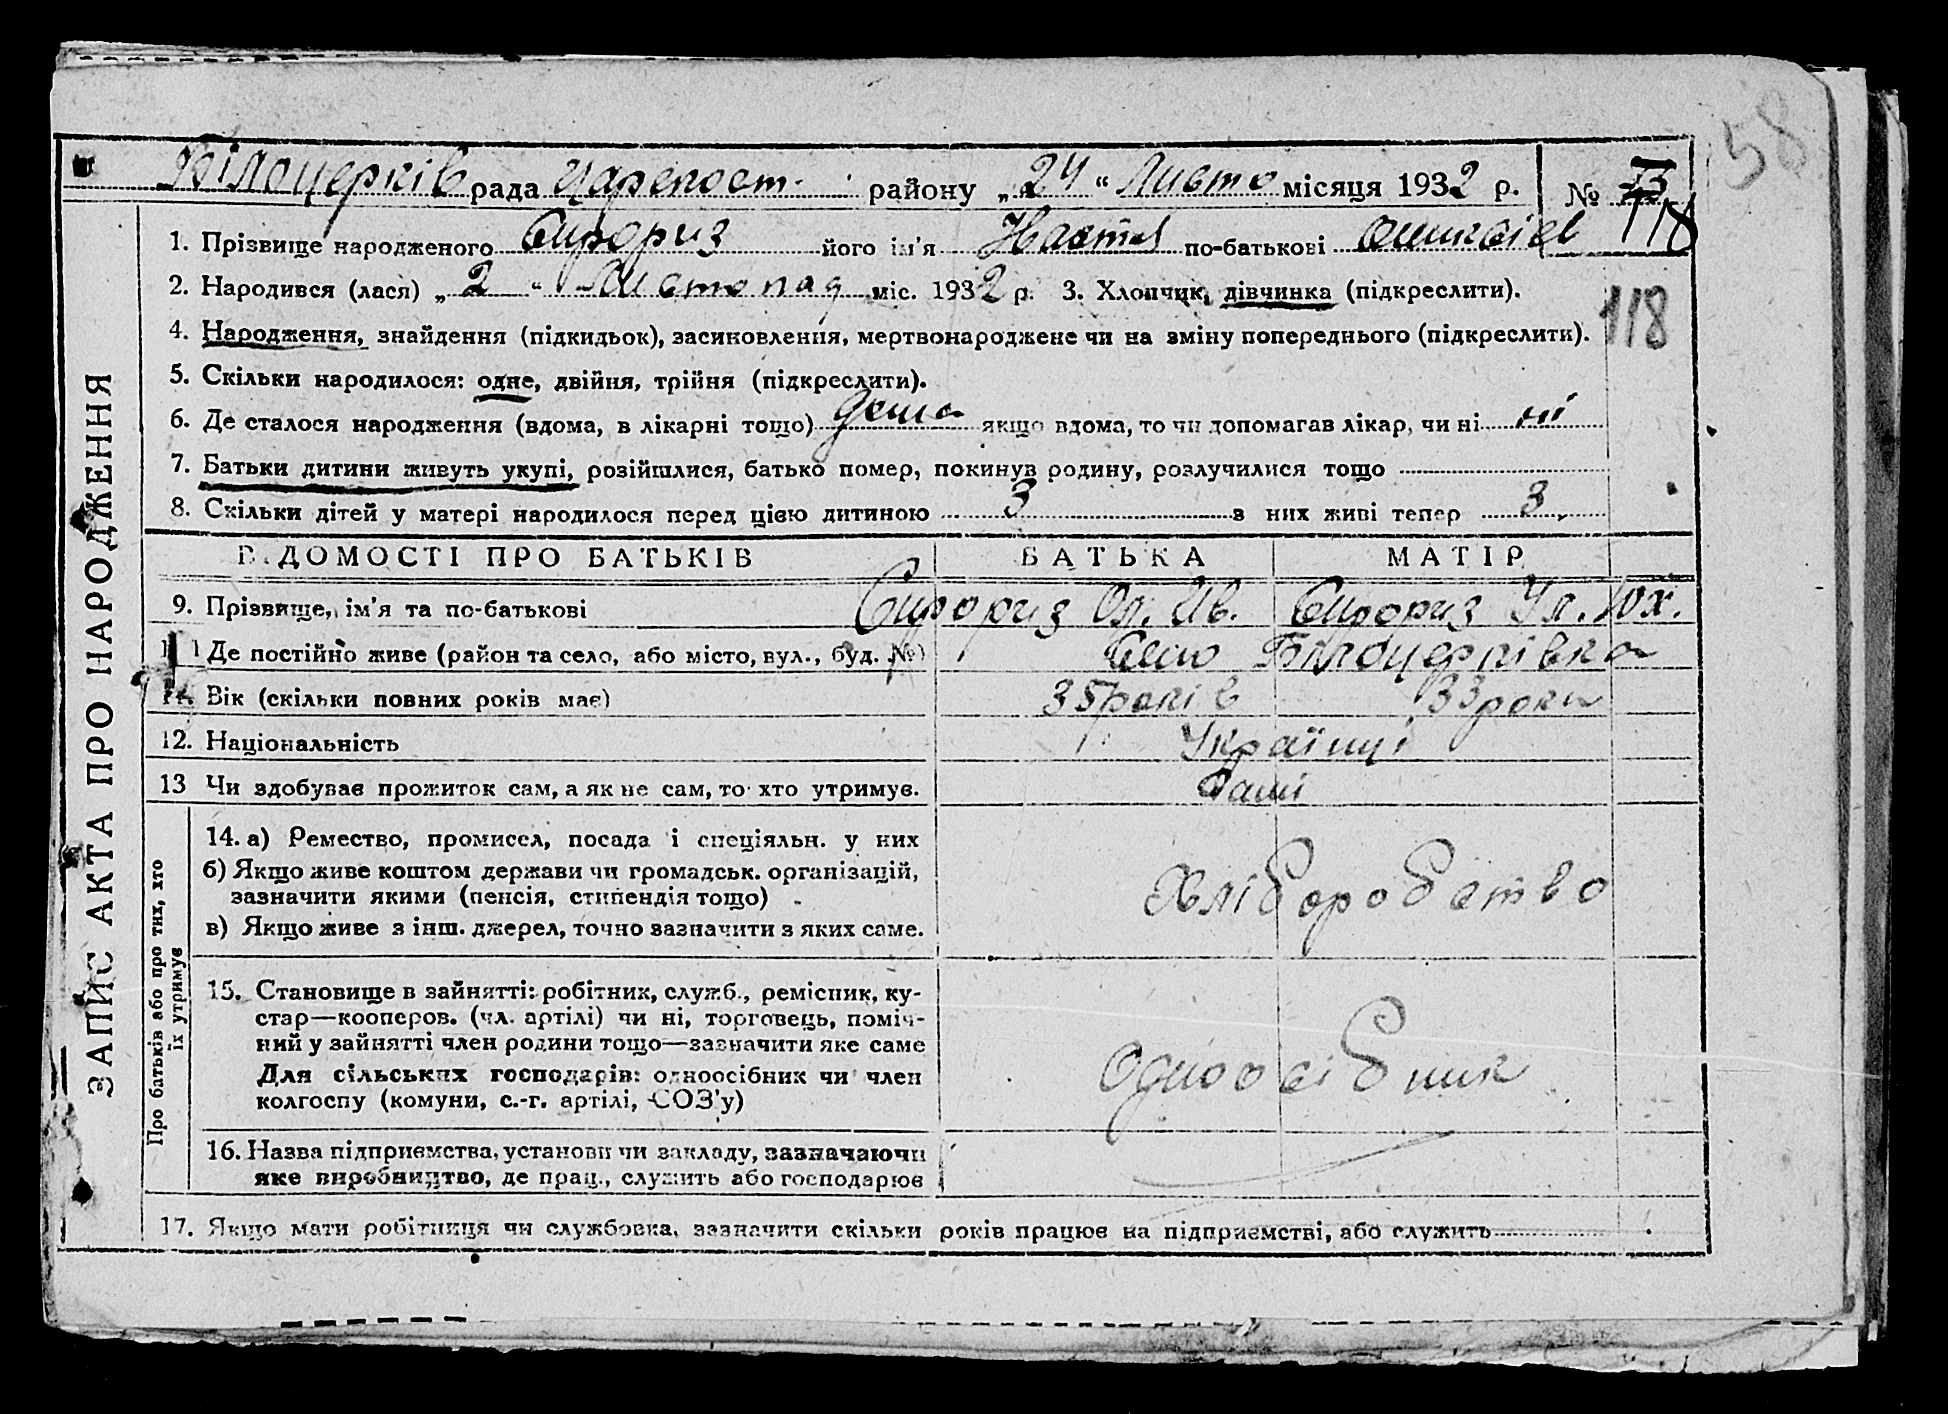 58
Білоцерків рада Царепост. району „24“ Листо місяця 1932 р. № 118
1. Прізвище народженого його ім'я Настя по-батькові
2. Народився (лася) „2“ Листопад міс. 1932 р. 3. Хлопчик, дівчинка (підкреслити).
118
4. Народження, знайдення (підкидьок), засиновлення, мертвонароджене чи на зміну попереднього (підкреслити).
5. Скільки народилося: одне, двійня, трійня (підкреслити).
6. Де сталося народження (вдома, в лікарні тощо) дома якщо вдома, то чи допомагав лікар, чи ні ні
7. Батьки дитини живуть укупі, розійшлися, батько помер, покинув родину, розлучилися тощо
8. Скільки дітей у матері народилося перед цією дитиною 3 з них живі тепер 3
ВІДОМОСТІ ПРО БАТЬКІВ БАТЬКА МАТІР
9. Прізвище, ім'я та по-батькові Ів. Ул. Юх.
Де постійно живе (район та село, або місто, вул., буд. №) Село Білоцерківка
11. Вік (скільки повних років має) 35 років 33 роки
12. Національність Українці
13 Чи здобуває прожиток сам, а як не сам, то хто утримує. Самі
14. а) Ремество, промисел, посада і спеціяльн. у них
б) Якщо живе коштом держави чи громадськ. організацій,
зазначити якими (пенсія, стипендія тощо)
в) Якщо живе з інш. джерел, точно зазначити з яких саме.
Хліборобство
15. Становище в зайнятті: робітник, служб., ремісник, ку-
стар—кооперов. (чл. артілі) чи ні, торговець, поміч-
ний у зайнятті член родини тощо—зазначити яке саме
Для сільських господарів: одноосібник чи член
колгоспу (комуни, с.-г. артілі, СОЗ'у)
Одноосібник
16. Назва підприємства, установи чи закладу, зазначаючи
яке виробництво, де прац., служить або господарює
17. Якщо мати робітниця чи службовка, зазначити скільки років працює на підприємстві, або служить
ЗАПИС АКТА ПРО НАРОДЖЕННЯ
Про батьків або про тих, хто
їх утримує